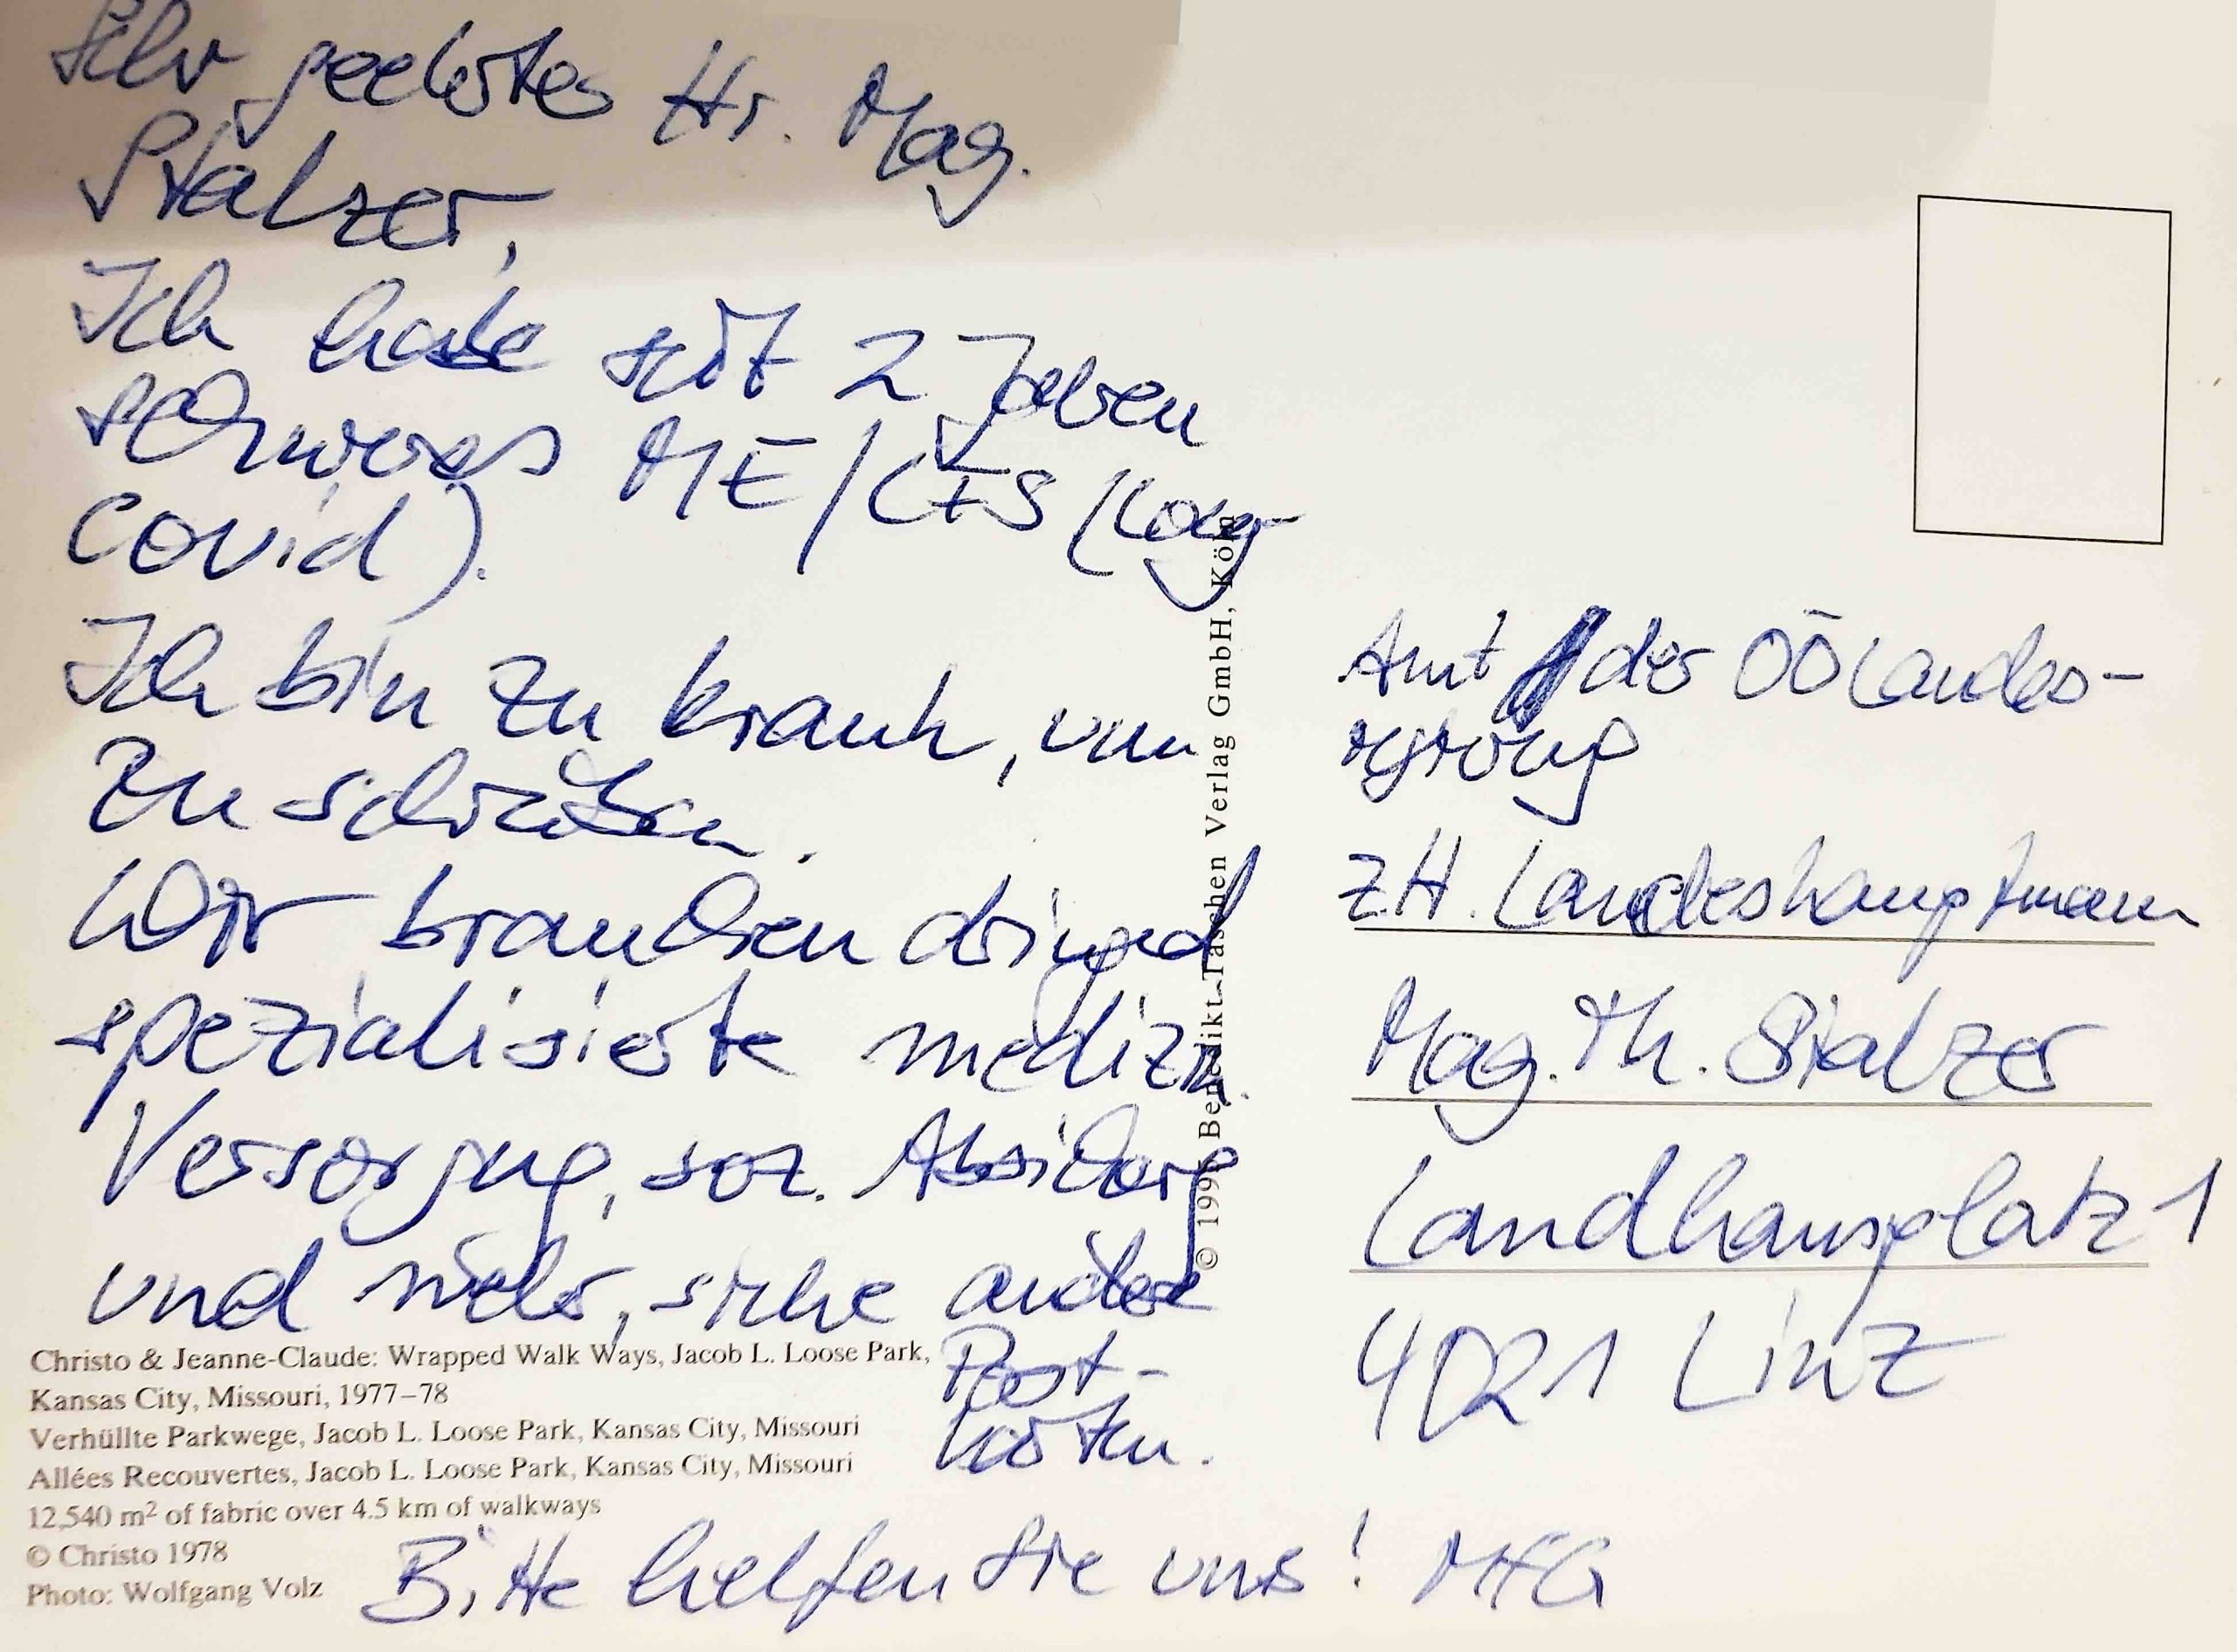 Sehr geehrter Hr. Mag.
Stalzer,
Ich habe seit 2 Jahren
schweres ME/CFS (Long-
Covid).
Ich bin zu krank, um
zu schreiben.
Wir brauchen dringend
spezialisierte medizin.
Versorgung, soz. Absicherg
und mehr, siehe andere
Post-
karten.
Bitte helfen Sie uns! MFG
Christo & Jeanne-Claude: Wrapped Walk Ways, Jacob L. Loose Park,
Kansas City, Missouri, 1977–78
Verhüllte Parkwege, Jacob L. Loose Park, Kansas City, Missouri
Allées Recouvertes, Jacob L. Loose Park, Kansas City, Missouri
12,540 m² of fabric over 4.5 km of walkways
© Christo 1978
Photo: Wolfgang Volz
© Benedikt Taschen Verlag GmbH, Köln
Amt der OÖ Landes-
regierung
z.H. Landeshauptmann
Mag. Th. Stalzer
Landhausplatz 1
4021 Linz